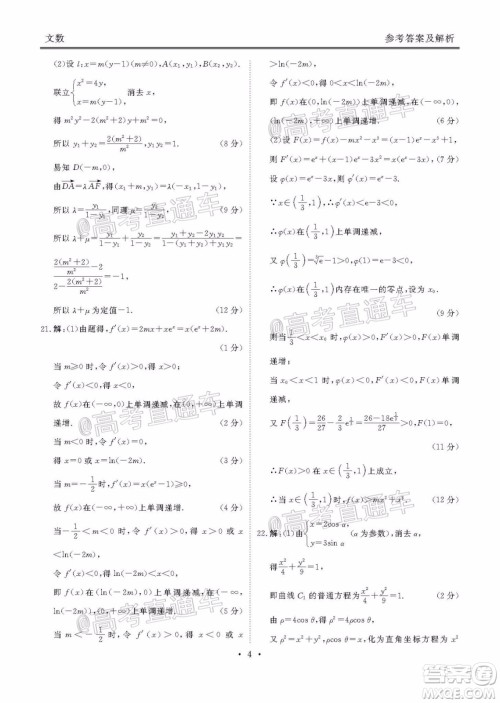 文数
参考答案及解析
(2)设 l:x=m(y-1)(m≠0),A(x₁,y₁),B(x₂,y₂).
联立{x²=4y, x=m(y-1), 消去 x,
得 m²y²-2(m²+2)y+m²=0,
所以 y₁+y₂=2(m²+2)/m²,y₁y₂=1. (8 分)
易知 D(-m,0),
由DA=λAF,得(x₁+m,y₁)=λ(-x₁,1-y₁),
所以 λ=y₁/(1-y₁),同理 μ=y₂/(1-y₂), (9 分)
所以 λ+μ=y₁/(1-y₁)+y₂/(1-y₂)=(y₁+y₂-2y₁y₂)/(1-(y₁+y₂)+y₁y₂)=
(2(m²+2)/m²-2)/(2-2(m²+2)/m²)=-1.
所以 λ+μ 为定值-1. (12 分)
21.解:(1)由题得,f′(x)=2mx+xeˣ=x(eˣ+2m).
(1 分)
当 m≥0 时,令 f′(x)>0,得 x>0,
令 f′(x)<0,得 x<0,
故 f(x)在(-∞,0)上单调递减,在(0,+∞)上单调
递增. (2 分)
当 m<0 时,令 f′(x)=0,得 x=0 或 x=ln(-2m).
当 m=-1/2 时,f′(x)≥0,
故 f(x)在(-∞,+∞)上单调递增. (3 分)
当-1/2<m<0 时,令 f′(x)>0,得 x>0 或 x
<ln(-2m).
令 f′(x)<0,得 ln(-2m)<x<0,
即 f(x)在(ln(-2m),0)上单调递减,在(-∞,
ln(-2m)),(0,+∞)上单调递增. (4 分)
当 m<-1/2 时,令 f′(x)>0,得 x<0 或 x
>ln(-2m).
令 f′(x)<0,得 0<x<ln(-2m),
即 f(x)在(0,ln(-2m))上单调递减,在(-∞,
0),(ln(-2m),+∞)上单调递增. (6 分)
(2)设 F(x)=f(x)-mx²-x³=(x-1)eˣ-x³,
则 F′(x)=xeˣ-3x²=x(eˣ-3x). (7 分)
设 φ(x)=eˣ-3x,则 φ′(x)=eˣ-3,
∵x∈(1/3,1),∴φ′(x)<e-3<0,
∴φ(x)在(1/3,1)上单调递减.
又 φ(1/3)=∛e-1>0,φ(1)=e-3<0,
∴φ(x)在(1/3,1)内存在唯一的零点,设为 x₀.
(9 分)
当 1/3<x<x₀ 时,φ(x)>0,F′(x)>0,F(x)单调
递增;
当 x₀<x<1 时,φ(x)<0,F′(x)<0,F(x)单调
递减,
又 F(1)=-1,
(11 分)
∴F(x)>-1 在(1/3,1)上成立,
22.解:(1)由{x=2cos α, y=3sin α (α 为参数),消去 α
得x²/4+y²/9=1,
即曲线 C₁ 的普通方程为x²/4+y²/9=1. (2 分)
由 ρ=4cos θ,得 ρ²=4ρcos θ,化为直角坐标方程 x²
• 4 •
高考直通车
高考直通车
高考直通车
高考直通车
答案圈
MXQE.COM